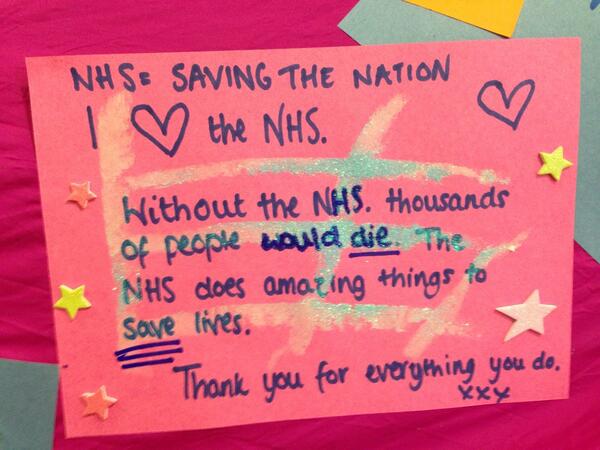 NHS = SAVING THE NATION
I ♡ the NHS.
Without the NHS. thousands
of people would die. The
NHS does amazing things to
save lives.
Thank you for everything you do.
xxx